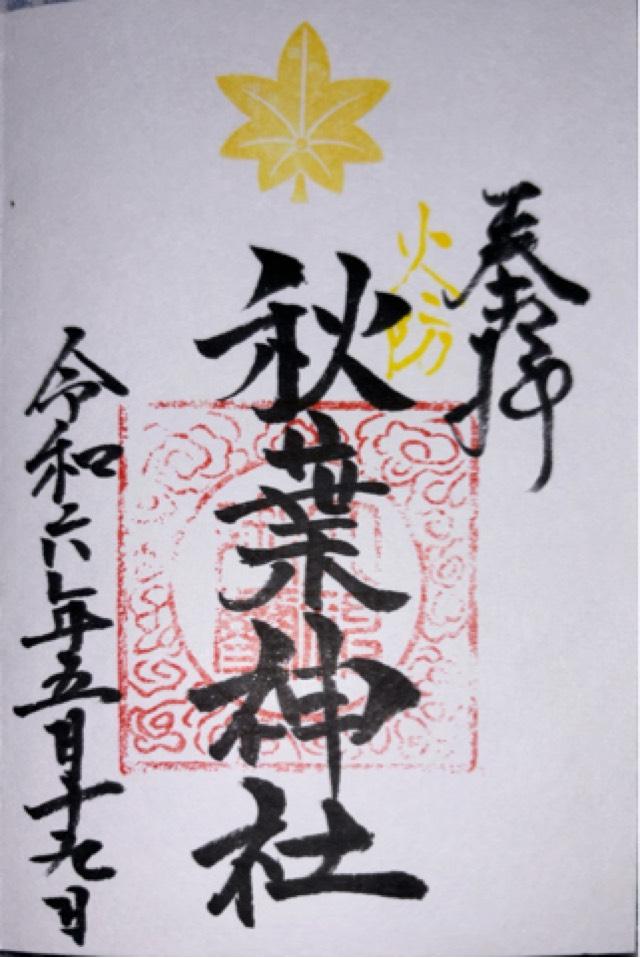 奉拝
火防
秋葉神社
令和六年五月十九日